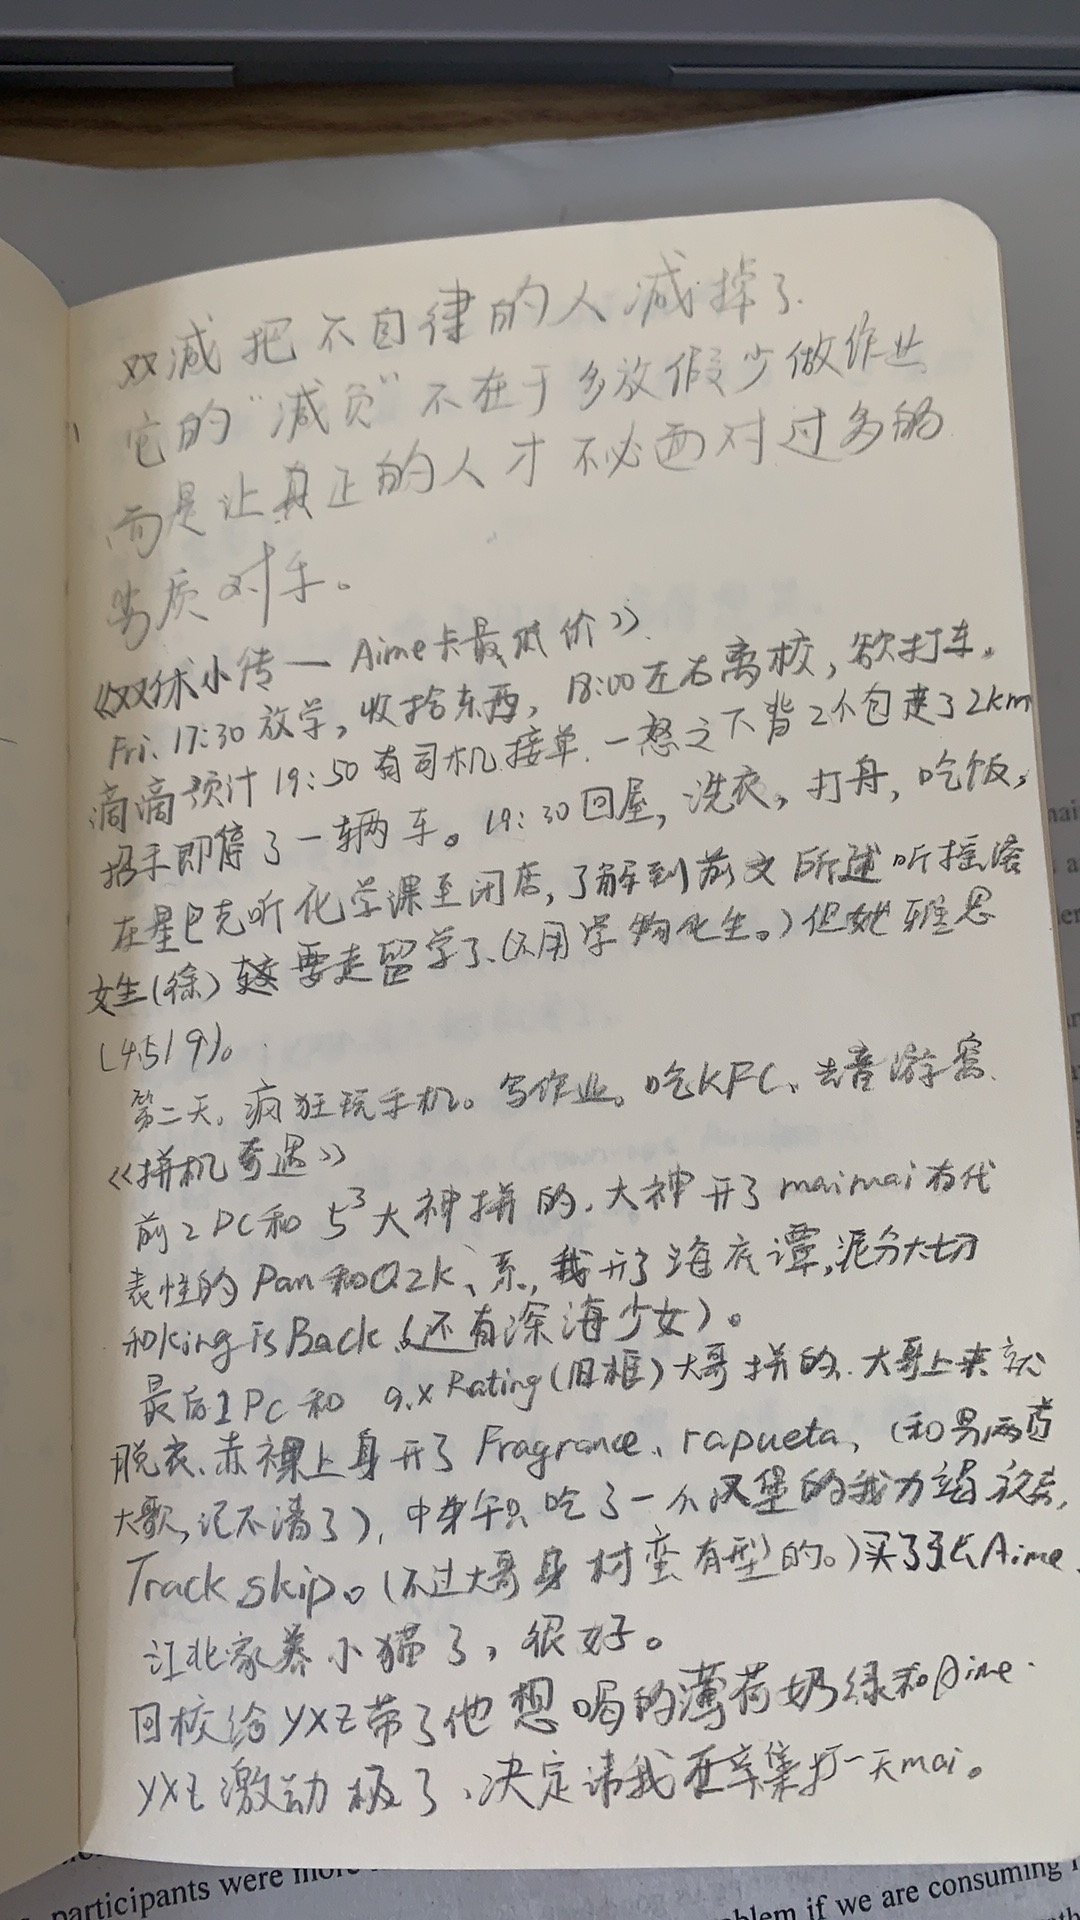 双减把不自律的人减掉了.
它的"减负"不在于多放假少做作业
而是让真正的人才不必面对过多的
劣质对手。
《双休小传 — Aime卡最低价》
Fri. 17:30 放学，收拾东西，18:00左右离校，欲打车。
滴滴预计 19:50 有司机接单.一怒之下背2个包走了2km
招手即停了一辆车。19:30回屋，洗衣，打舟，吃饭，
在星巴克听化学课至闭店，了解到前文所述听摇滚
女生(徐)要走留学了、(不用学物化生。)但她雅思
(4.5/9)。
第二天，疯狂玩手机。写作业。吃KFC、去音游窝、
《拼机奇遇》
前2PC和 5³大神拼的，大神开了maimai有代
表性的 Pan和QZk、系，我开了海底谭，泥分大切
和king is Back、(还有深海少女)。
最后1PC和 9.x Rating(旧框)大哥拼的、大哥上来就
脱衣、赤裸上身开了 Fragrance、rapueta、(和另两首
大歌，记不清了)，中午只吃了一个汉堡的我力竭
Track skip。(不过大哥身材蛮有型的。)买了3张Aime、
江北家养小猫了，很好。
回校给yxz带了他想喝的薄荷奶绿和Aime.
yxz激动极了、决定请我在辛集打一天mai。
participants were more
blem if we are consuming